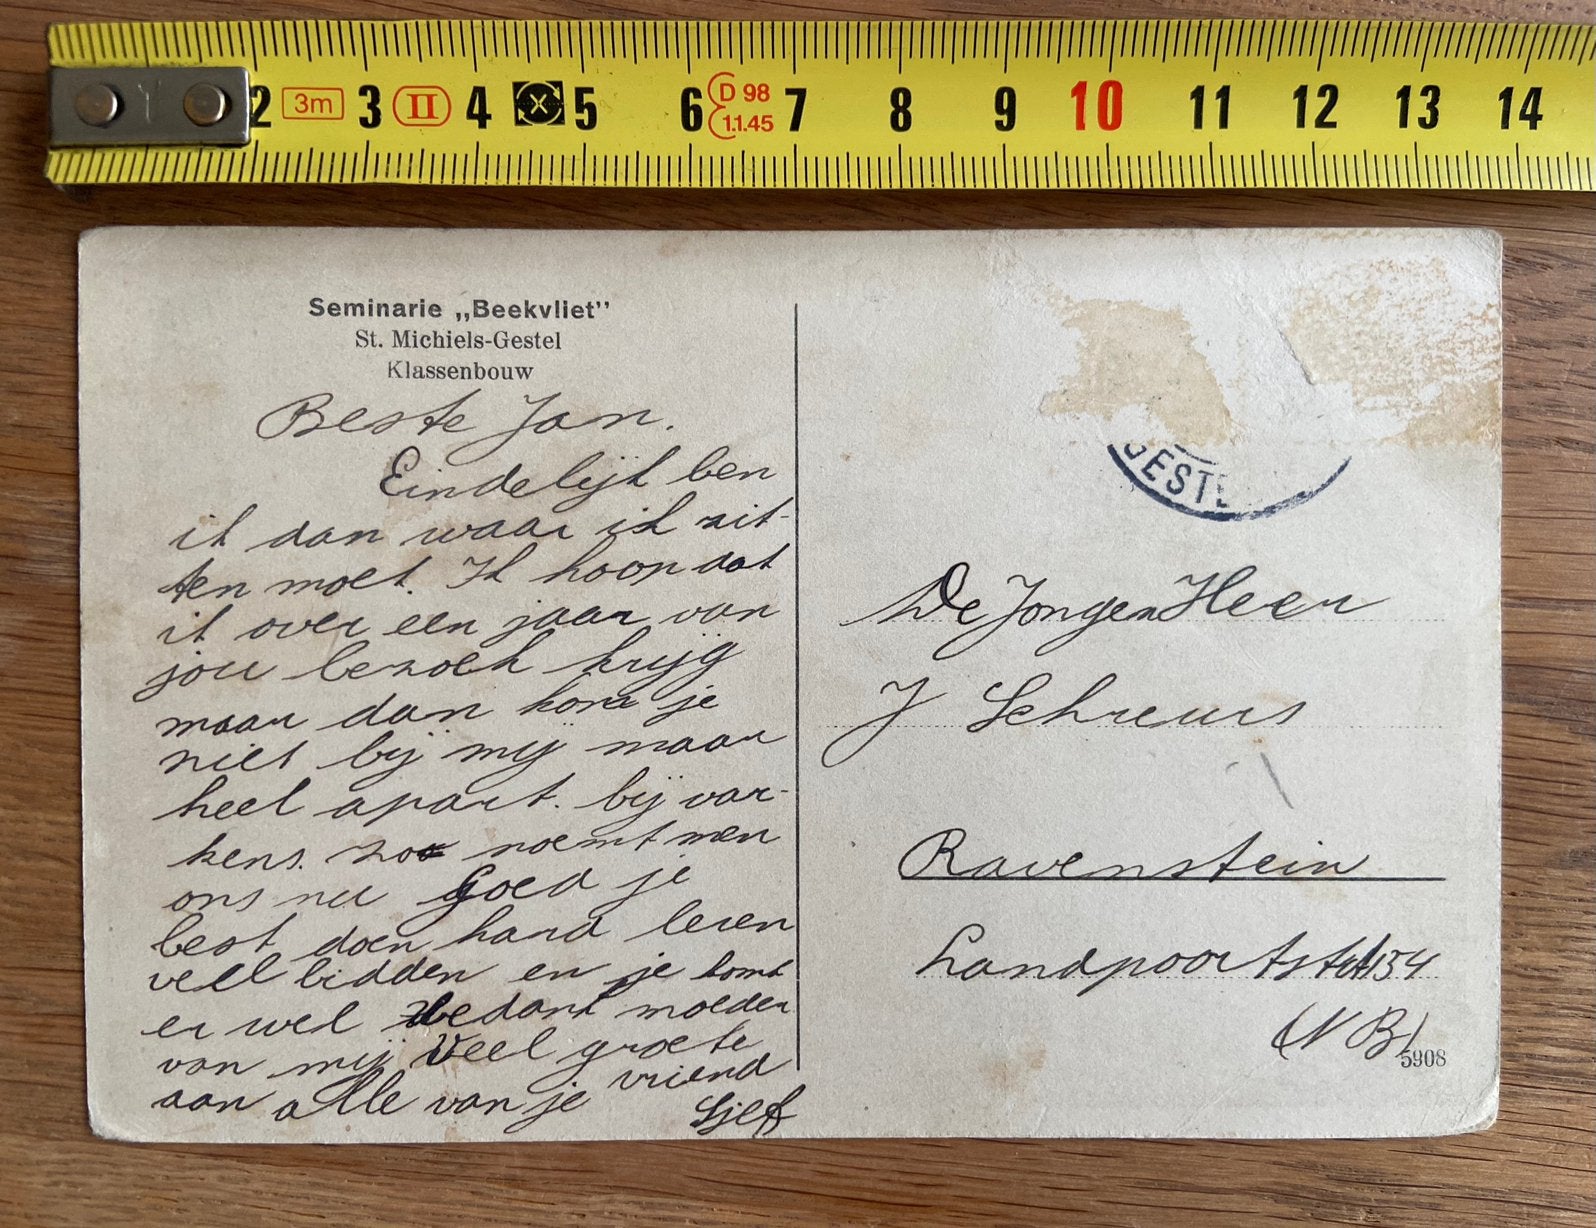 2 3m 3 II 4 X 5 6 D 98 1.1.45 7 8 9 10 11 12 13 14
Seminarie „Beekvliet”
St. Michiels-Gestel
Klassenbouw
Beste Jan.
Eindelijk ben
ik dan waar ik zit-
ten moet. Ik hoop dat
ik over een jaar van
jou bezoek krijg
maar dan kom je
niet bij mij maar
heel apart. bij var-
kens. zoo noemt men
ons nu Goed je
best doen hard leren
veel bidden en je komt
er wel bedank moeder
van mij Veel groete
aan alle van je vriend
Sjef
GESTE
De Jongen Heer
J Schreurs
Ravenstein
Landpoortstr 134
(N B)
5908